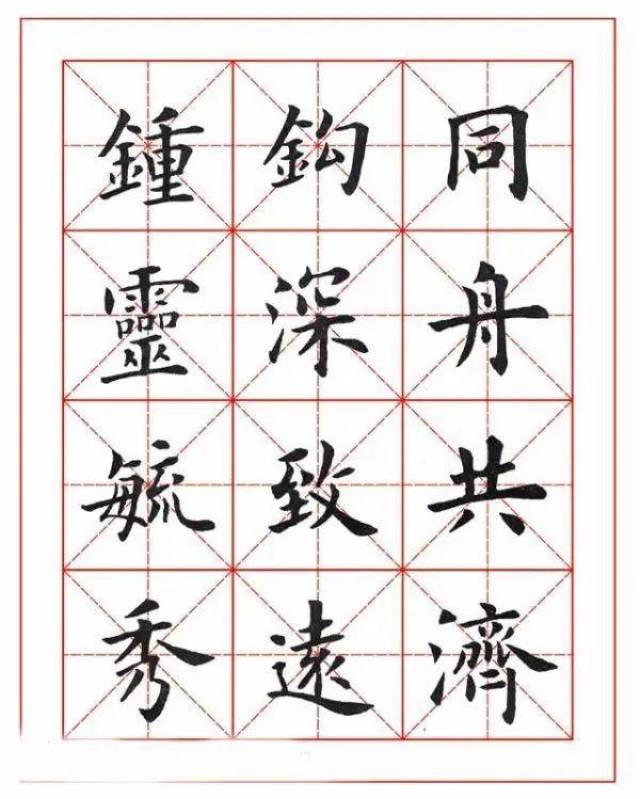 同舟共濟
鈎深致遠
鍾靈毓秀